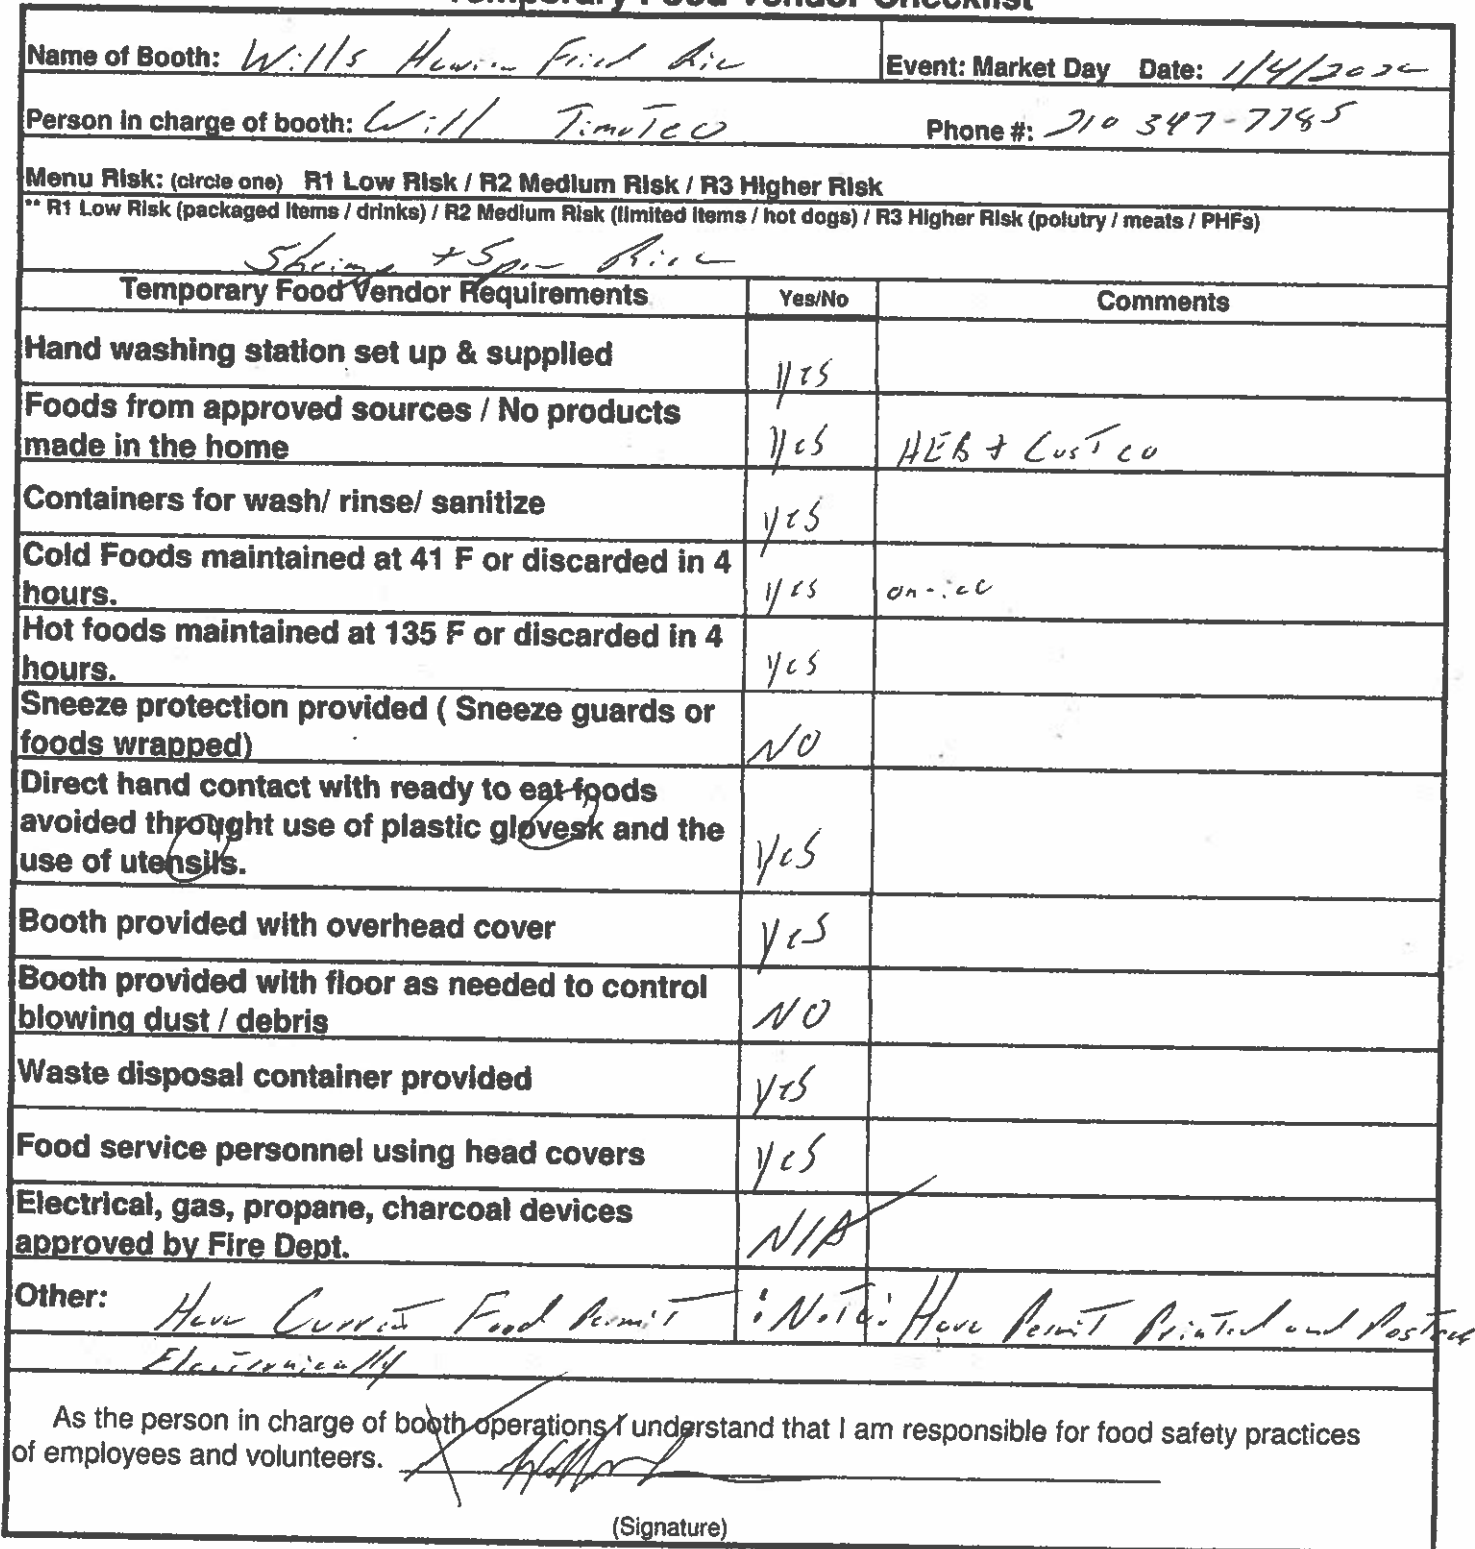 Temporary Food Vendor Checklist
Name of Booth: Will's Fried Ric Event: Market Day Date: 1/4/202
Person in charge of booth: Will TimoTeo Phone #: 210 347-7785
Menu Risk: (circle one) R1 Low Risk / R2 Medium Risk / R3 Higher Risk
** R1 Low Risk (packaged items / drinks) / R2 Medium Risk (limited items / hot dogs) / R3 Higher Risk (polutry / meats / PHFs)
Shrimp + Spam Rice
Temporary Food Vendor Requirements Yes/No Comments
Hand washing station set up & supplied yes
Foods from approved sources / No products
made in the home yes HEB + CosTco
Containers for wash/ rinse/ sanitize yes
Cold Foods maintained at 41 F or discarded in 4
hours. yes on-ice
Hot foods maintained at 135 F or discarded in 4
hours. yes
Sneeze protection provided ( Sneeze guards or
foods wrapped) NO
Direct hand contact with ready to eat foods
avoided throught use of plastic glovesk and the
use of utensils. yes
Booth provided with overhead cover yes
Booth provided with floor as needed to control
blowing dust / debris NO
Waste disposal container provided yes
Food service personnel using head covers yes
Electrical, gas, propane, charcoal devices
approved by Fire Dept. N/A
Other: Have Current Food Permit : Note: Have Permit Printed and Posted
Electronically
As the person in charge of booth operations I understand that I am responsible for food safety practices
of employees and volunteers. X
(Signature)